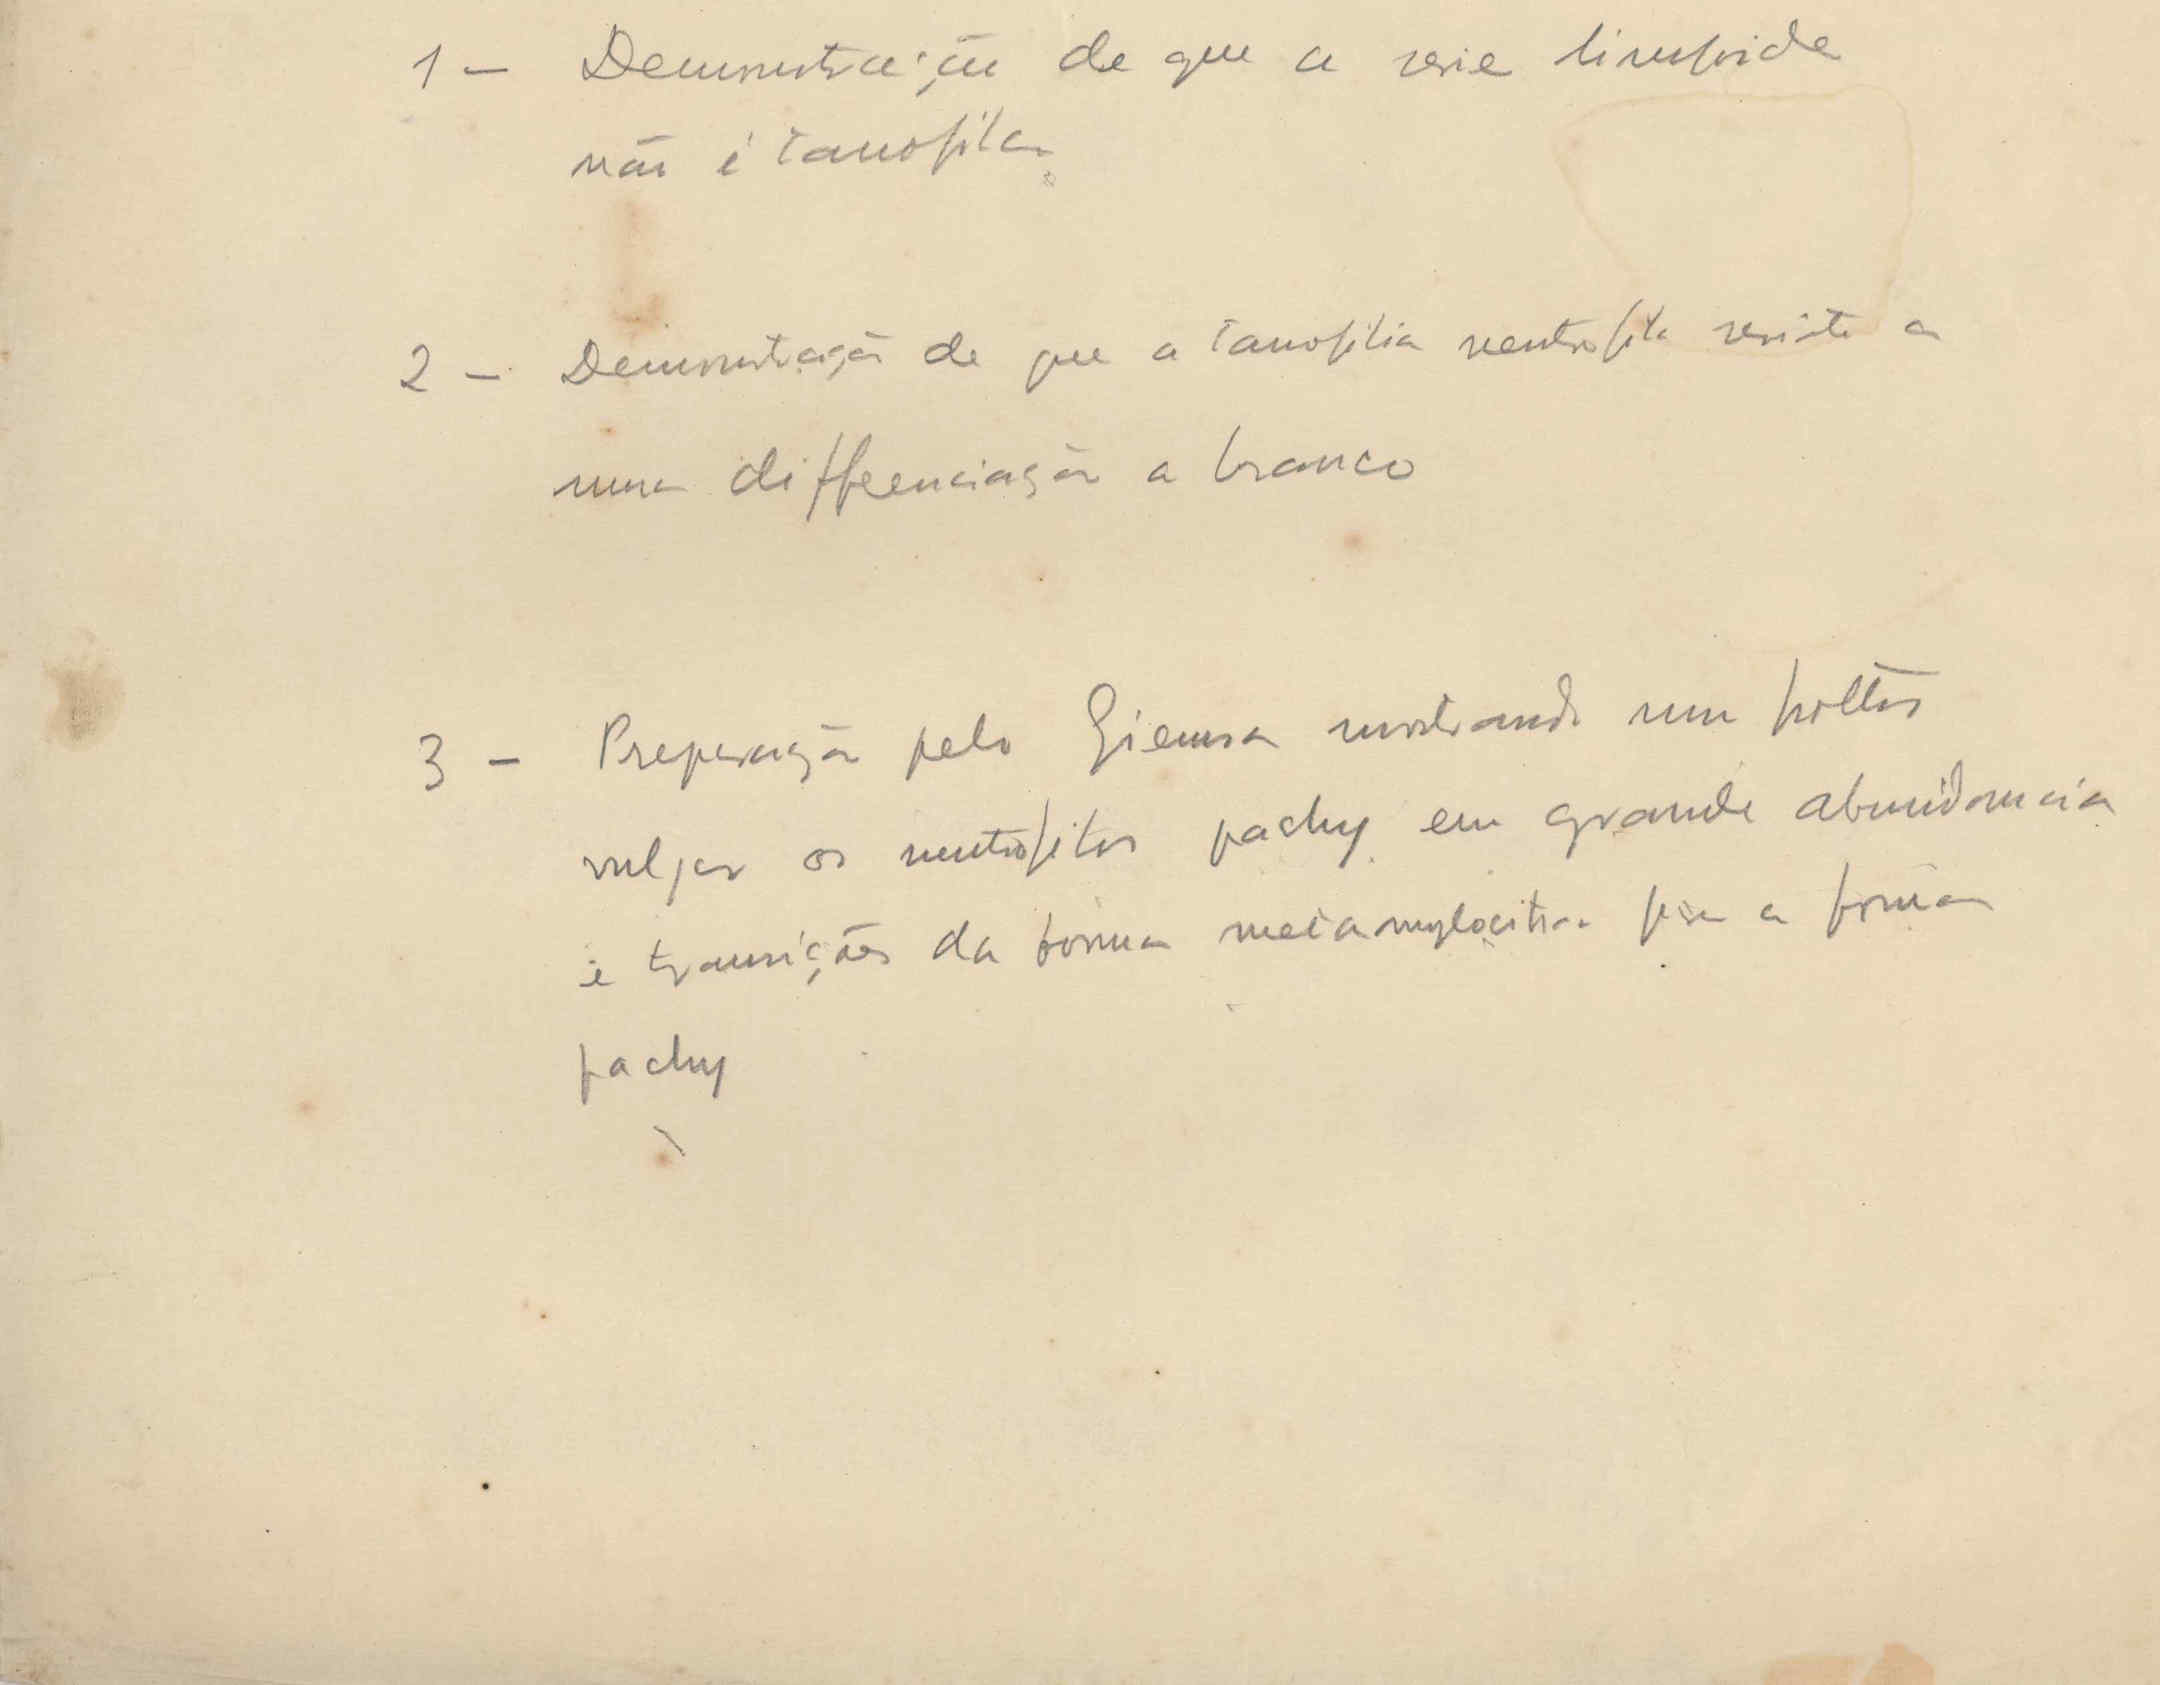 1 – Demonstração de que a serie linfoide
não é tanofila.
2 – Demonstração de que a tanofilia neutrofila resiste a
uma differenciação a branco
3 – Preparação pelo Giemsa mostrando num
vulgar os neutrofilos pachy em grande abundancia
e transições da forma metamylocitica para a forma
pachy